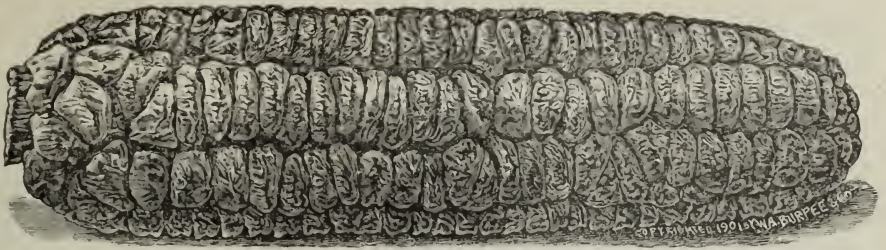 COPYRIGHTED 1901 BY W.A. BURPEE & CO.